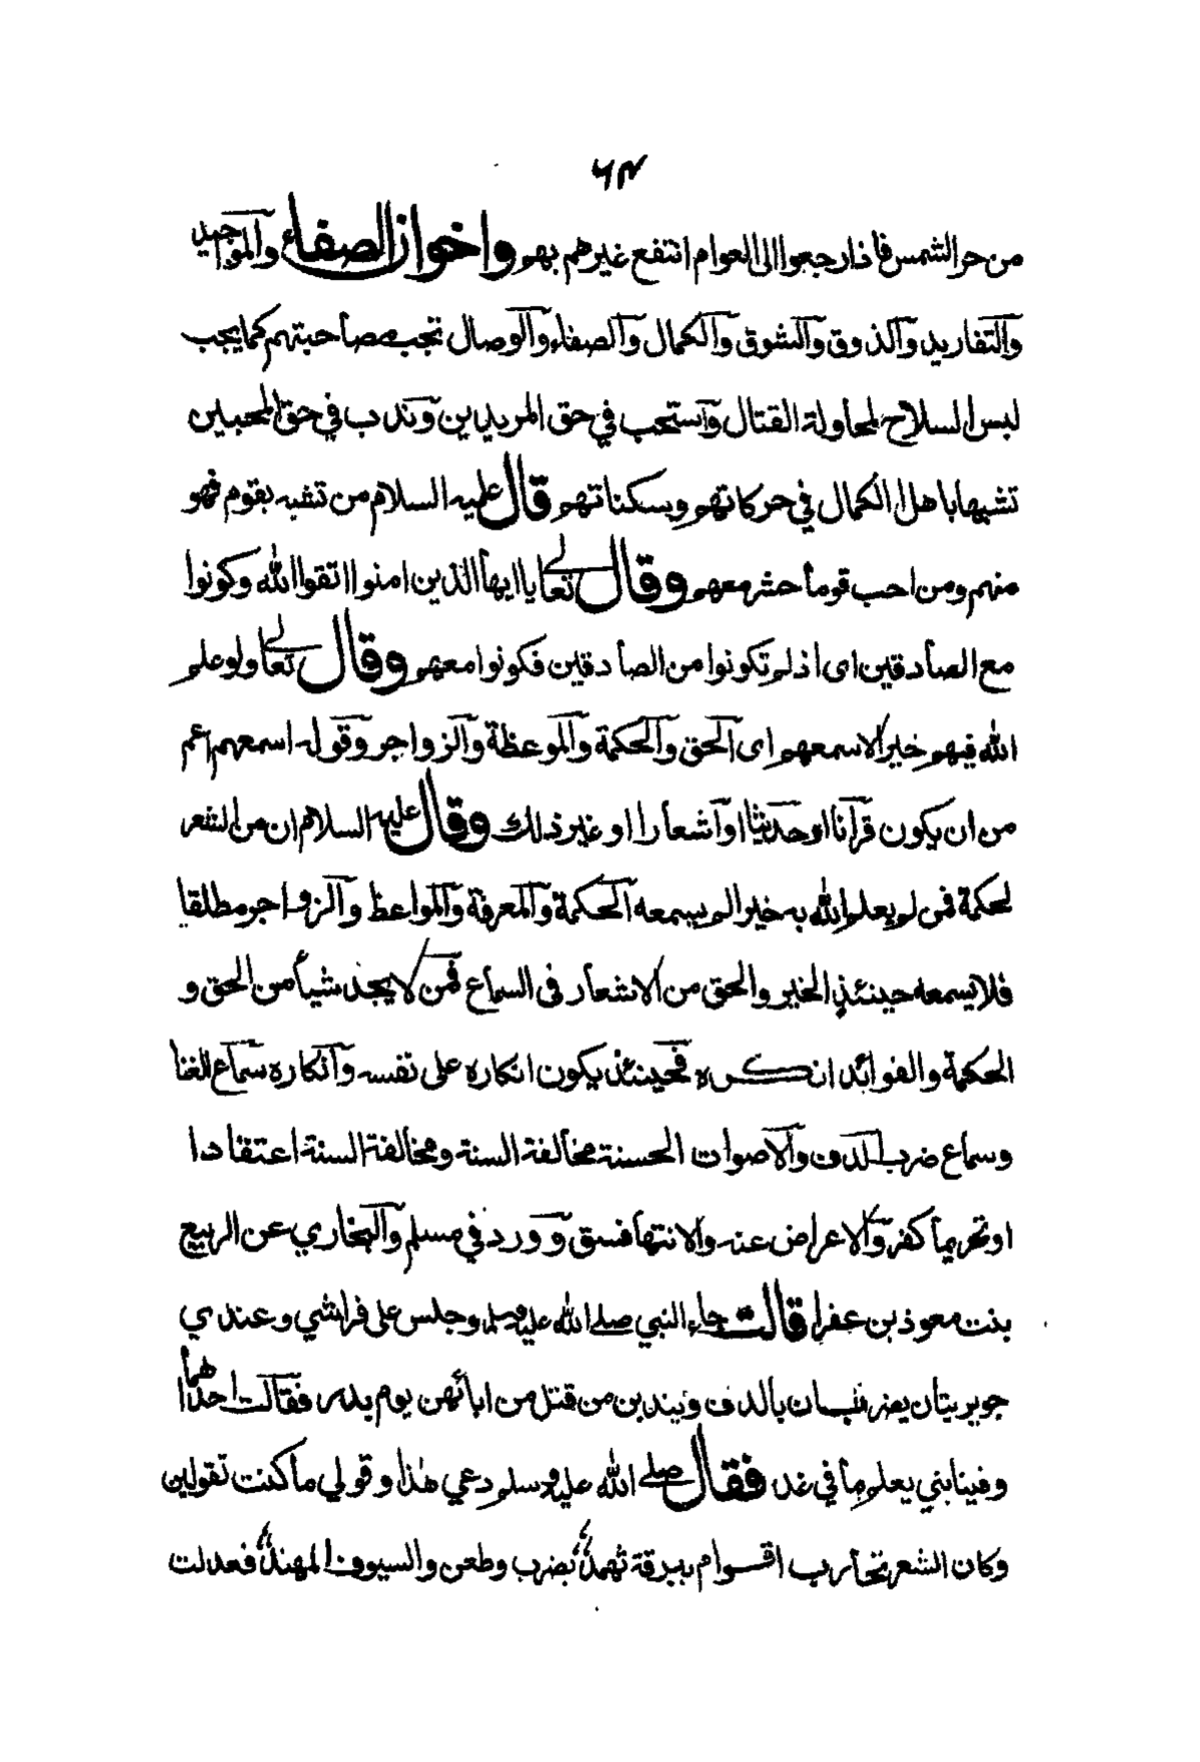 ٦٣
من حر الشمس فاذا رجعوا الى العوام انتفع غيرهم بهم واخوان الصفاء والمواجيد
والتفاريد والذوق والشوق والكمال والصفاء والوصال تجب مصاحبتهم كما يجب
لبس السلاح لمحاولة القتال واستحب في حق المريدين وندب في حق المحبين
تشبها باهل الكمال في حركاتهم وسكناتهم قال عليه السلام من تشبه بقوم فهو
منهم ومن احب قوما حشر معهم وقال تعالى يا ايها الذين امنوا اتقوا الله وكونوا
مع الصادقين اى اذ لم تكونوا من الصادقين فكونوا معهم وقال تعالى ولو علم
الله فيهم خيرا لاسمعهم اى الحق والحكمة والموعظة والزواجر وقوله اسمعهم اعم
من ان يكون قرآنا او حديثا او اشعارا او غير ذلك وقال عليه السلام ان من الشعر
لحكمة فمن لم يعلم الله به خيرا لم يسمعه الحكمة والمعرفة والمواعظ والزواجر مطلقا
فلا يسمعه حينئذ الخير والحق من الاشعار فى السماع فمن لا يجد شيأ من الحق و
الحكمة والفوائد انكره فحينئذ يكون انكاره على نفسه وانكاره سماع الغنا
وسماع ضرب الدف والاصوات الحسنة مخالفة السنة ومخالفة السنة اعتقادا
او تحريما كفر والاعراض عنه والانتها فسق وورد في مسلم والبخاري عن الربيع
بنت معوذ بن عفرا قالت جاء النبي صلى الله عليه وسلم وجلس على فراشي وعندي
جويريتان يضربان بالدف ويندبن من قتل من ابائهن يوم بدر فقالت احداهما
وفينا نبي يعلم ما في غد فقال صلى الله عليه وسلم دعي هذا وقولي ما كنت تقولين
وكان الشعر تحارب اقوام ببرقة ثهمد بضرب وطعن والسيوف المهند فعدلت